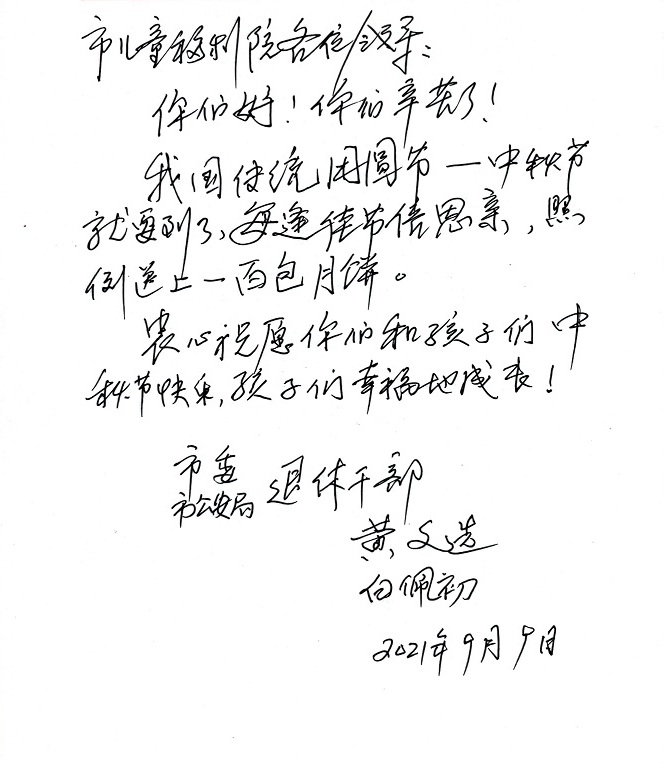 市儿童福利院各位领导：
你们好！你们辛苦了！
我国传统团圆节一中秋节
就要到了，每逢佳节倍思亲，照
例送上一百包月饼。
衷心祝愿你们和孩子们中
秋节快乐，孩子们幸福地成长！
市委
市公安局 退休干部
黄文选
白佩初
2021年9月9日